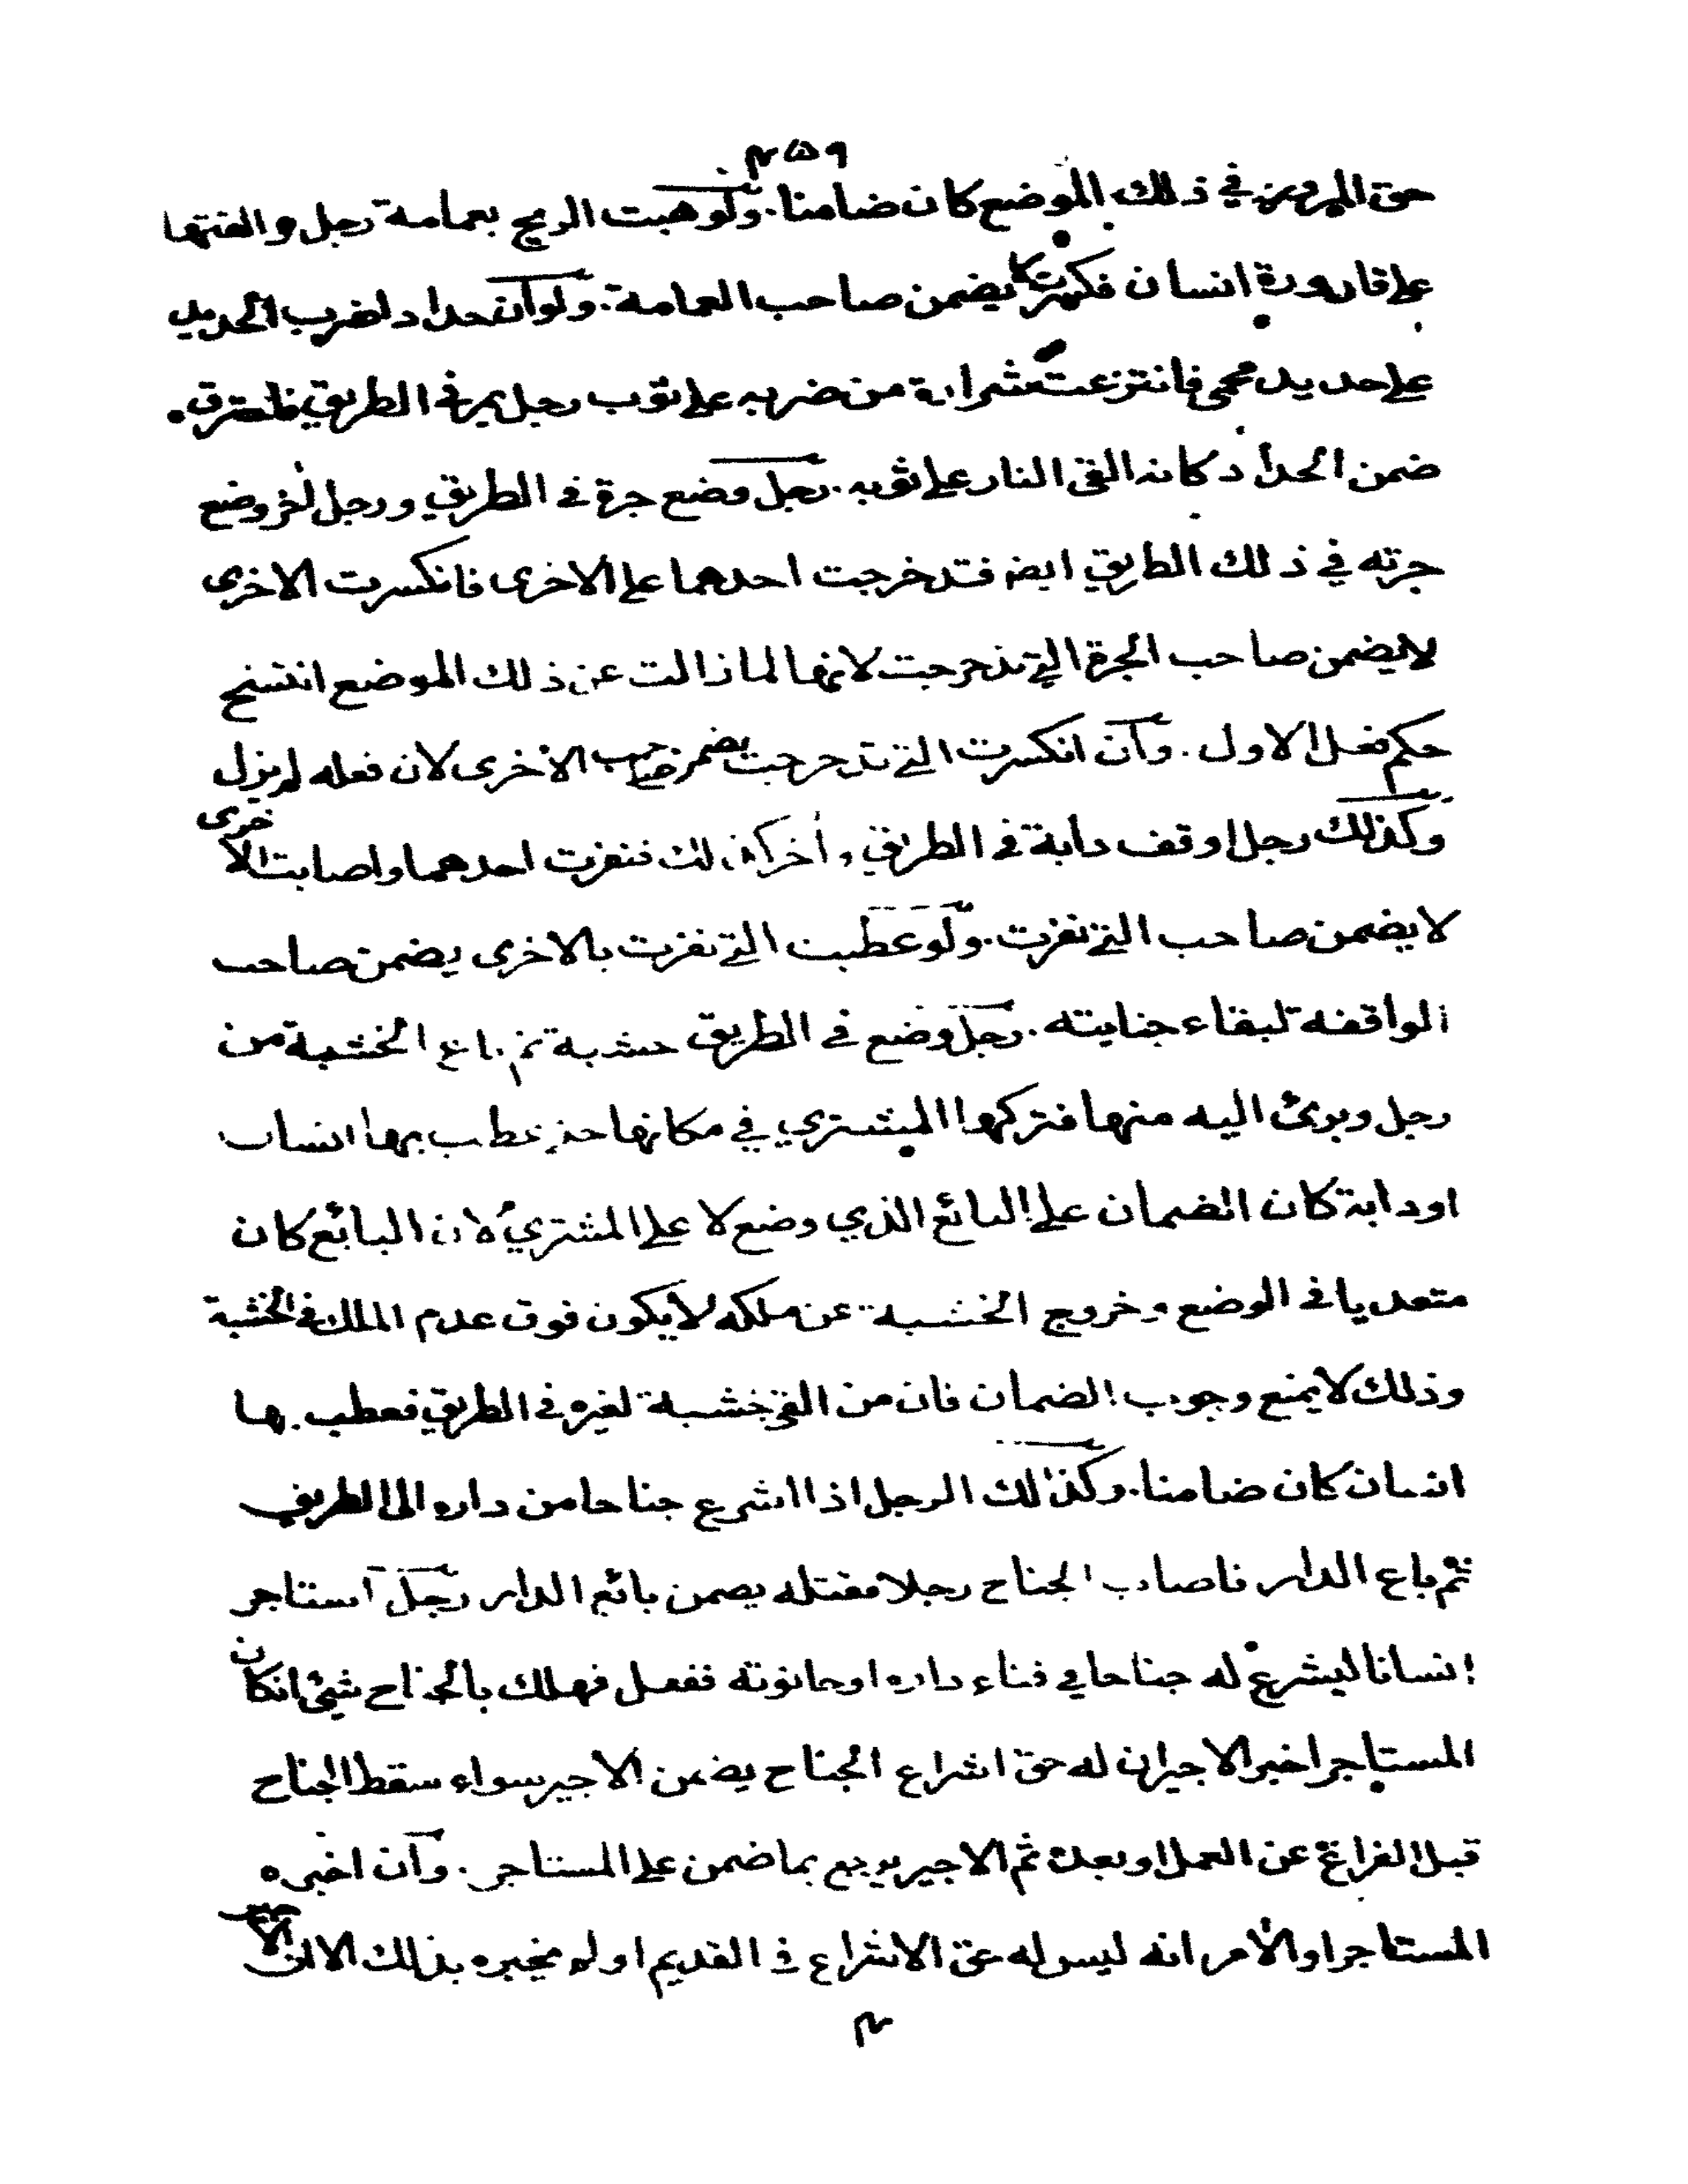 ٢٥٩
حق المرور في ذلك الموضع كان ضامنا. ولو هبت الريح بعمامة رجل والقتها
على قارورة انسان فكسرتها يضمن صاحب العمامة. ولو ان حدادا ضرب الحديد
على حديد محمى فانتزعت شرارة من ضربه على ثوب رجل يمر في الطريق فاحترق.
ضمن الحداد كانه القى النار على ثوبه. رجل وضع جرة في الطريق ورجل اخر وضع
جرته في ذلك الطريق ايضا فتدحرجت احدهما على الاخرى فانكسرت الاخرى
لا يضمن صاحب الجرة التي تدحرجت لانها لما زالت عن ذلك الموضع انتسخ
حكم فعل الاول. وان انكسرت التي تدحرجت يضمن صاحب الاخرى لان فعله لم يزل
وكذلك رجل اوقف دابة في الطريق واخر كذلك فنفرت احدهما واصابت الاخرى
لا يضمن صاحب التي نفرت. ولو عطبت التي نفرت بالاخرى يضمن صاحب
الواقفه لبقاء جنايته. رجل وضع في الطريق خشبة ثم باع الخشبة من
رجل وبرئ اليه منها فتركها المشتري في مكانها حتى عطب بها انسان
او دابة كان الضمان على البائع الذي وضع لا على المشتري لان البائع كان
متعديا في الوضع وخروج الخشبة عن ملكه لا يكون فوق عدم الملك في الخشبة
وذلك لا يمنع وجوب الضمان فان من القى خشبة لغيره في الطريق فعطب بها
انسان كان ضامنا. وكذلك الرجل اذا اشرع جناحا من داره الى الطريق
ثم باع الدار فاصاب الجناح رجلا فقتله يضمن بائع الدار رجل استاجر
انسانا ليشرع له جناحا في فناء داره او حانوته ففعل فهلك بالجناح شئ ان كان
المستاجر اخبر الاجير ان له حق اشراع الجناح يضمن الاجير سواء سقط الجناح
قبل الفراغ عن العمل او بعده ثم الاجير يرجع بما ضمن على المستاجر. وان اخبره
المستاجر او الامر انه ليس له حق الاشراع في القديم او لم يخبره بذلك الا ان